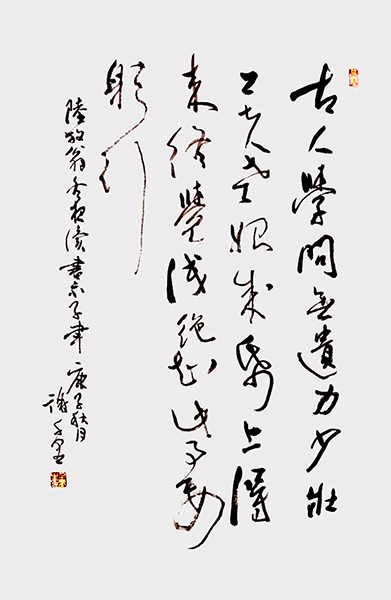 古人學問無遺力少壯
工夫老始成紙上得
來終覺淺絕知此事要
躬行
陸放翁冬夜讀書示子聿 庚子秋月